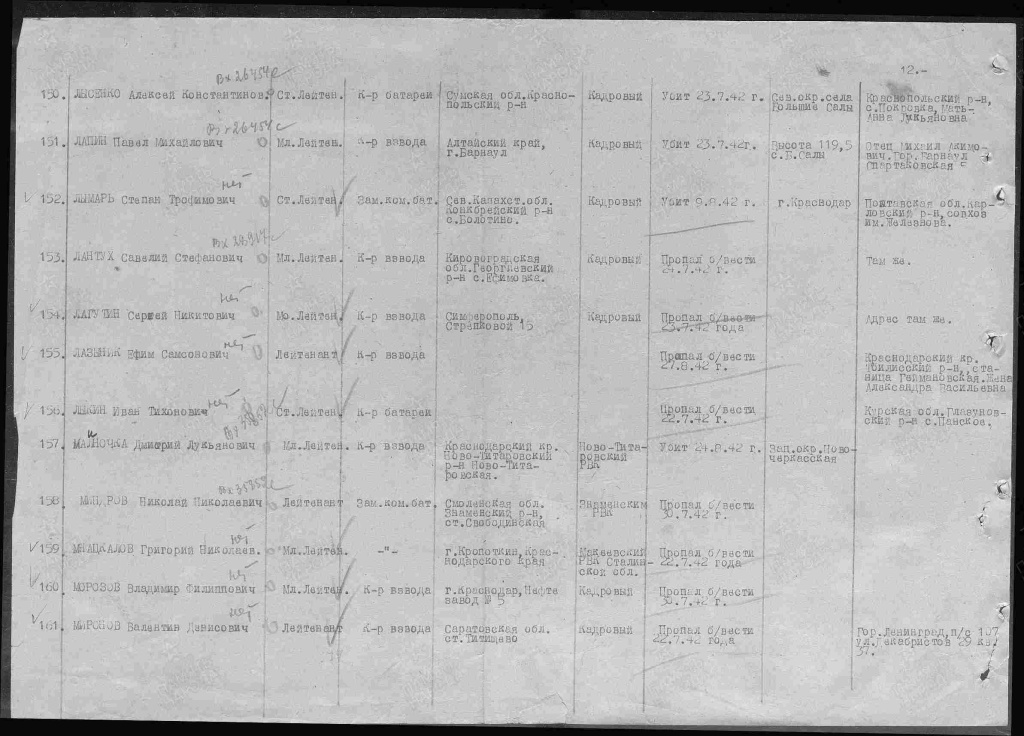 Вх 26454с
12.-
150. ЛЫСЕНКО Алексей Константинов. Ст.Лейтен. К-р батареи Сумская обл.Красно- Кадровый Убит 23.7.42 г. Сев.окр.села Краснопольский р-н,
польский р-н Большие Салы с.Покровка, Мать-
Анна Лукьяновна
Вх 26454с
151. ЛАПИН Павел Михайлович Мл.Лейтен. К-р взвода Алтайский край, Кадровый Убит 23.7.42г. Высота 119,5 Отец Михаил Акимо-
г.Барнаул с.Б.Салы вич.Гор.Барнаул
Спартаковская
нет
152. ЛЫМАРЬ Степан Трофимович Ст.Лейтен. Зам.ком.бат. Сев.Казахст.обл. Кадровый Убит 9.8.42 г. г.Краснодар Полтавская обл.Кар-
Конкбрейский р-н ловский р-н,совхоз
с.Болотино. им.Железнова.
153. ЛАНТУХ Савелий Стефанович Мл.Лейтен. К-р взвода Кировоградская Кадровый Пропал б/вести Там же.
обл.Георгиевский 24.7.42 г.
р-н с.Ефимовка.
нет
154. ЛАГУТИН Сергей Никитович Мо.Лейтен. К-р взвода Симферополь, Кадровый Пропал б/вести Адрес там же.
Стрелковой 15 23.7.42 года
нет
155. ЛАЗЬНИК Ефим Самсонович Лейтенант К-р взвода Пропал б/вести Краснодарский кр.
27.8.42 г. Тбилисский р-н, ста-
ница Геймановская.Жена
Александра Васильевна
нет
156. ЛЯКИН Иван Тихонович Ст.Лейтен. К-р батареи Пропал б/вести Курская обл.Глазунов-
22.7.42 г. ский р-н с.Панское.
157. МАЛНОЧКА Дмитрий Лукьянович Мл.Лейтен. К-р взвода Краснодарский кр. Ново-Тита- Убит 24.8.42 г. Зап.окр.Ново-
Ново-Титаровский ровский черкасская
р-н Ново-Тита- РВК
ровская.
158. Николай Николаевич Лейтенант Зам.ком.бат. Смоленская обл. Знаменским Пропал б/вести
Знаменский р-н, РВК 30.7.42 г.
ст.Свободинская
нет
159. МНАЦКАЛОВ Григорий Николаев. Мл.Лейтен. -"- г.Кропоткин,Крас- Макеевский Пропал б/вести
нодарского края РВК Сталин- 22.7.42 года
ской обл.
нет
160. МОРОЗОВ Владимир Филиппович Мл.Лейтен. К-р взвода г.Краснодар,Нефте Кадровый Пропал б/вести
завод № 5 30.7.42 г.
нет
161. МИРОНОВ Валентин Денисович Лейтенант К-р взвода Саратовская обл. Кадровый Пропал б/вести Гор.Ленинград,п/с 107
ст.Титищево 22.7.42 года ул.Декабристов 29 кв.
37.